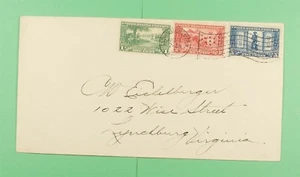 CW Eichelberger
1022 Wise Street
Lynchburg
Virginia.